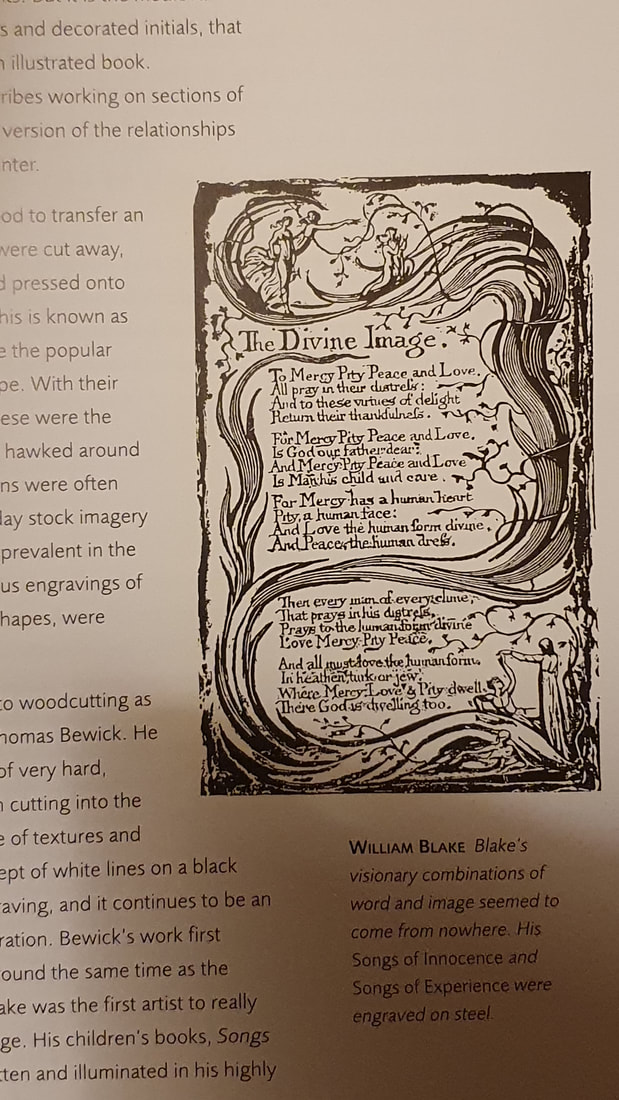 s and decorated initials, that
illustrated book.
ribes working on sections of
version of the relationships
nter.
od to transfer an
were cut away,
d pressed onto
his is known as
e the popular
pe. With their
ese were the
hawked around
ns were often
lay stock imagery
prevalent in the
us engravings of
hapes, were
to woodcutting as
homas Bewick. He
of very hard,
n cutting into the
e of textures and
ept of white lines on a black
raving, and it continues to be an
ration. Bewick's work first
ound the same time as the
ake was the first artist to really
ge. His children's books, Songs
tten and illuminated in his highly
The Divine Image.
To Mercy Pity Peace and Love.
All pray in their distress:
And to these virtues of delight
Return their thankfulness.
For Mercy Pity Peace and Love,
Is God our father dear:
And Mercy Pity Peace and Love
Is Man his child and care.
For Mercy has a human heart
Pity, a human face:
And Love the human form divine,
And Peace, the human dress.
Then every man of every clime,
That prays in his distress,
Prays to the human form divine
Love Mercy Pity Peace,
And all must love the human form,
In heathen, turk or jew.
Where Mercy, Love & Pity dwell,
There God is dwelling too.
WILLIAM BLAKE Blake's
visionary combinations of
word and image seemed to
come from nowhere. His
Songs of Innocence and
Songs of Experience were
engraved on steel.